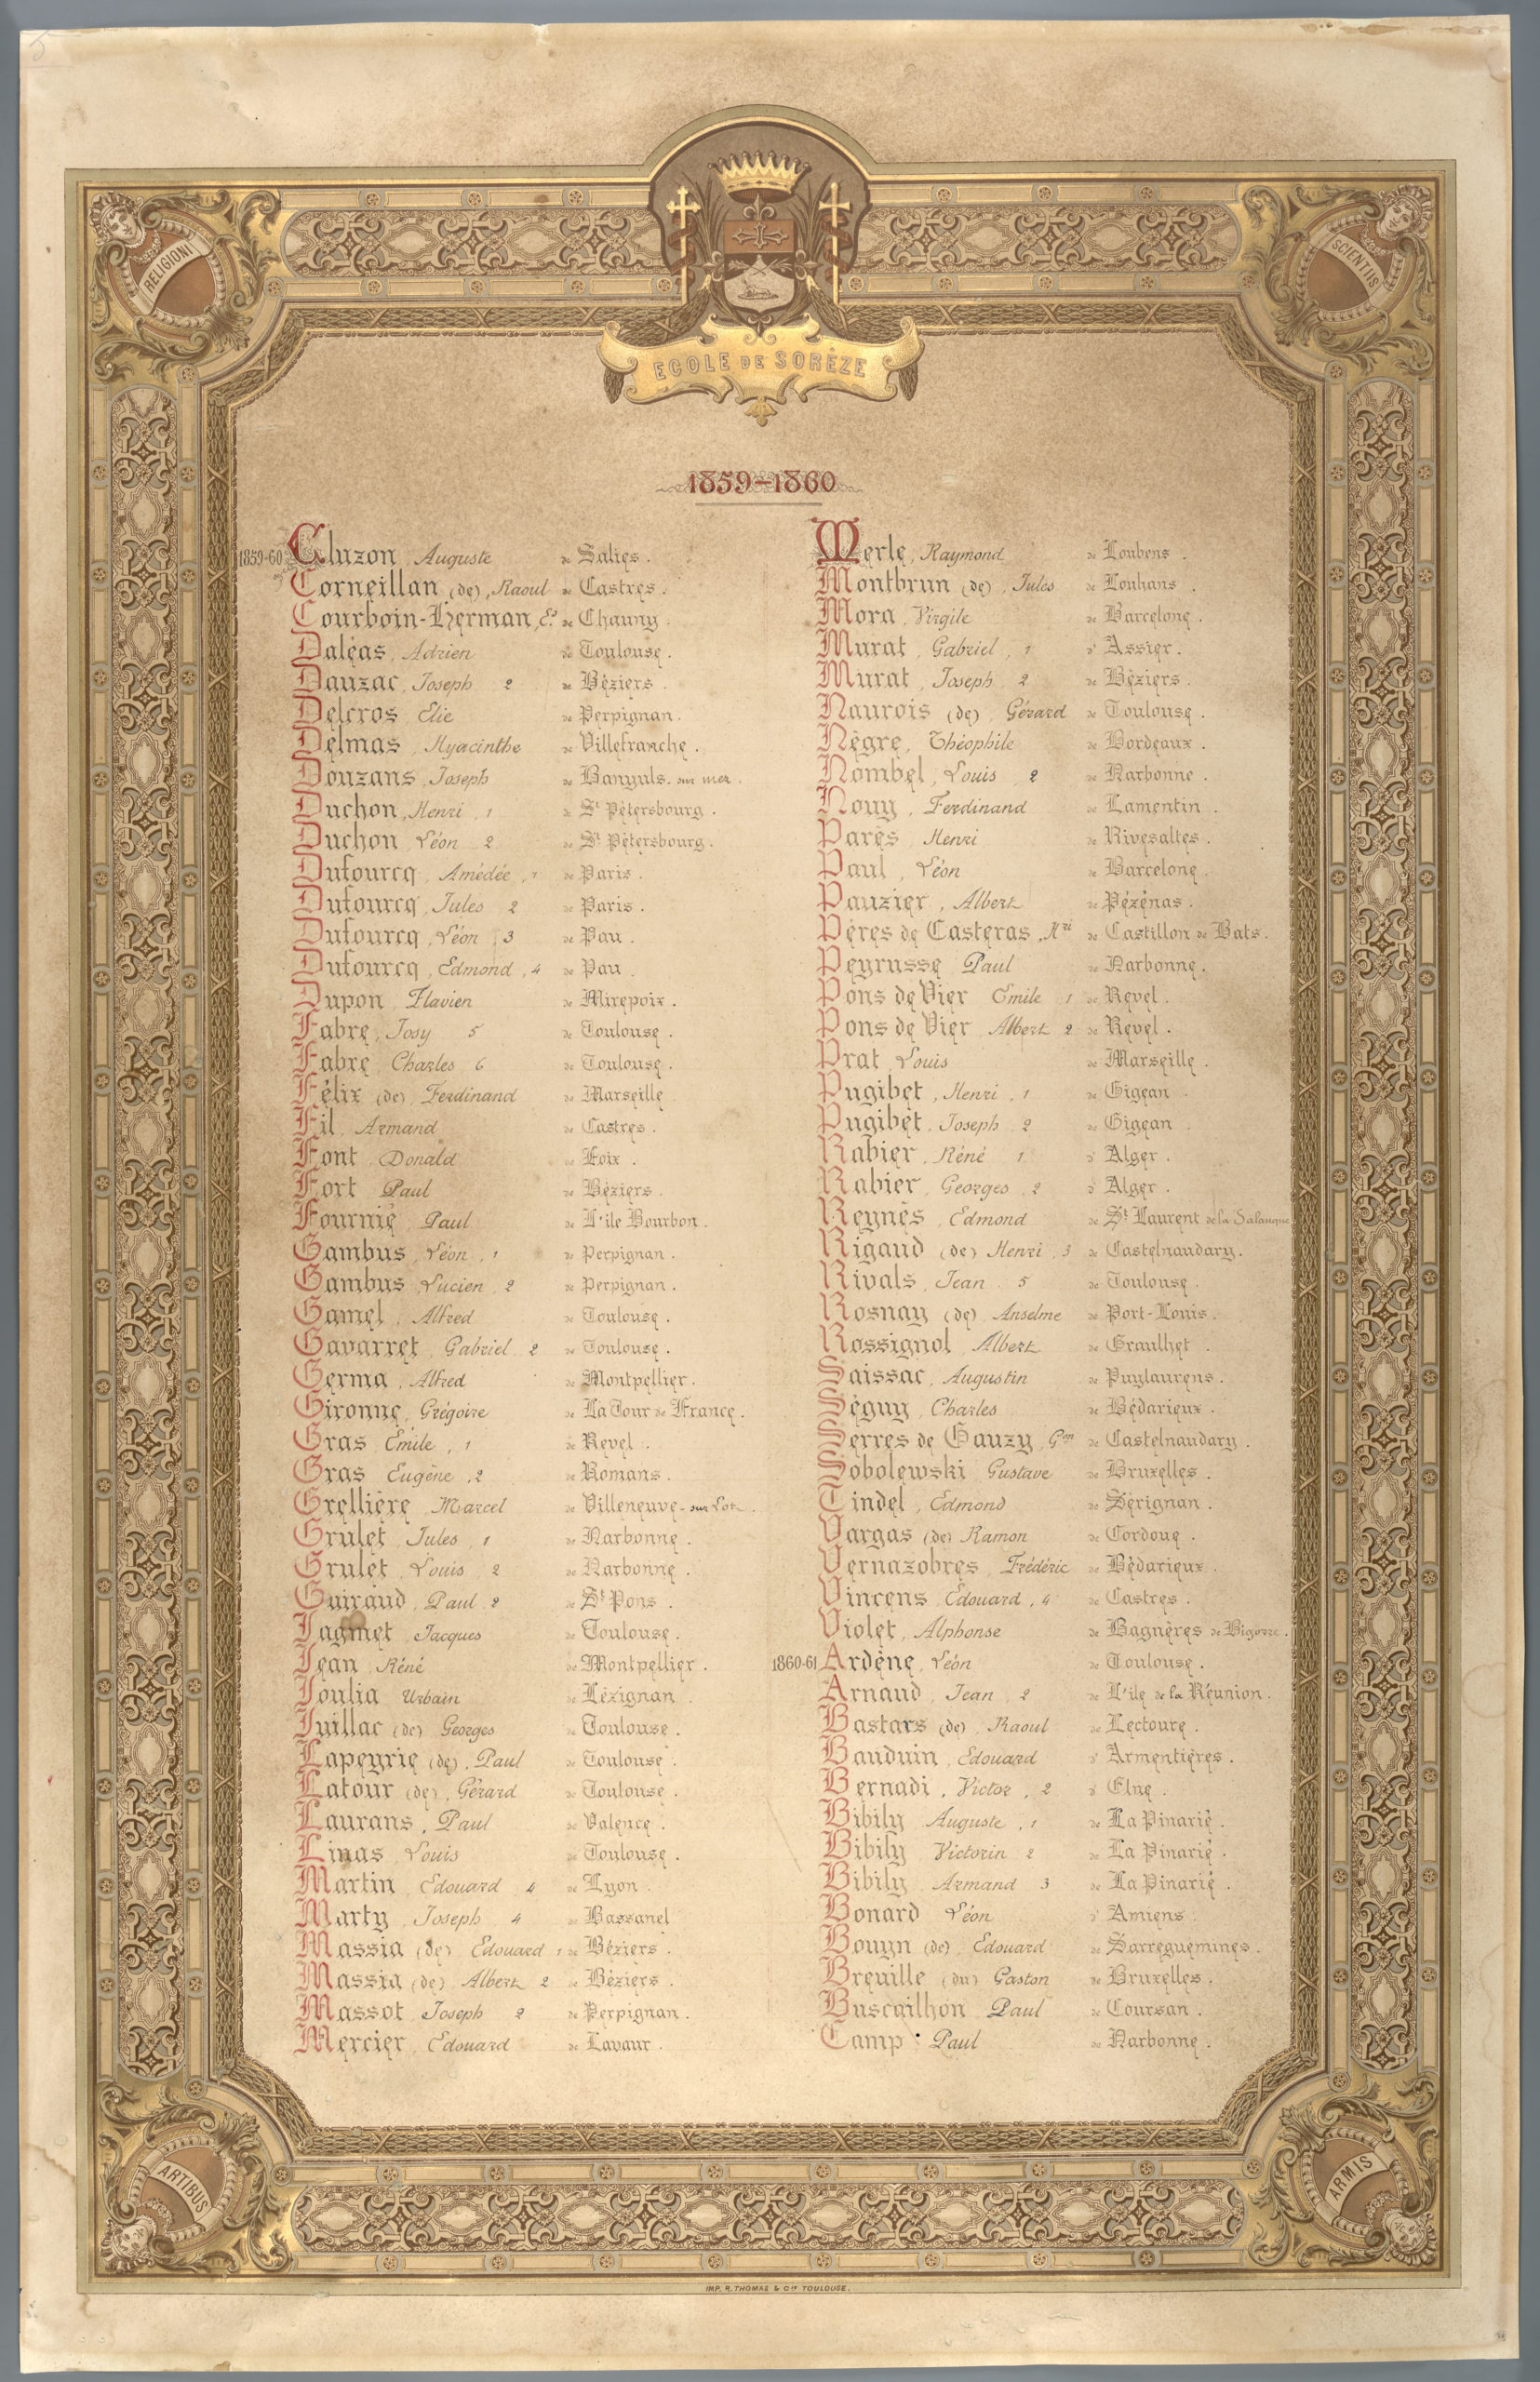 5
RELIGIONI
SCIENTIIS
ECOLE DE SORÈZE
1859-1860
1859-60 Cluzon, Auguste de Salies.
Corneillan (de), Raoul de Castres.
Courboin-Herman, Ed. de Chauny.
Daléas, Adrien de Toulouse.
Dauzac, Joseph 2 de Béziers.
Delcros, Elie de Perpignan.
Delmas, Hyacinthe de Villefranche.
Douzans, Joseph de Banyuls-sur mer.
Duchon, Henri, 1 de St Pétersbourg.
Duchon, Léon 2 de St Pétersbourg.
Dufourcq, Amédée, 1 de Paris.
Dufourcq, Jules 2 de Paris.
Dufourcq, Léon, 3 de Pau.
Dufourcq, Edmond, 4 de Pau.
Dupon, Flavien de Mirepoix.
Fabre, Josy 5 de Toulouse.
Fabre, Charles 6 de Toulouse.
Félix (de) Ferdinand de Marseille
Fil, Armand de Castres.
Font, Donald de Foix.
Fort Paul de Béziers.
Fournié, Paul de L'ile Bourbon.
Gambus, Léon, 1 de Perpignan.
Gambus, Lucien, 2 de Perpignan.
Gamel, Alfred de Toulouse.
Gavarret, Gabriel 2 de Toulouse.
Germa, Alfred de Montpellier.
Gironne, Grégoire de La Tour de France.
Gras Emile, 1 de Revel.
Gras Eugène, 2 de Romans.
Grellière, Marcel de Villeneuve-sur Lot.
Grulet, Jules, 1 de Narbonne.
Grulet, Louis, 2 de Narbonne.
Guiraud, Paul 2 de St Pons.
Jagmet, Jacques de Toulouse.
Jean, Réné de Montpellier.
Joulia Urbain de Lézignan
Juillac (de) Georges de Toulouse.
Lapeyrie (de), Paul de Toulouse.
Latour (de), Gérard de Toulouse.
Laurans, Paul de Valence.
Linas, Louis de Toulouse.
Martin, Edouard 4 de Lyon.
Marty, Joseph 4 de Bassanel
Massia (de) Edouard 1 de Béziers.
Massia (de) Albert 2 de Béziers.
Massot Joseph 2 de Perpignan.
Mercier, Edouard de Lavaur.
Merle, Raymond de Loubens.
Montbrun (de), Jules de Louhans.
Mora, Virgile de Barcelone.
Murat, Gabriel, 1 d' Assier.
Murat, Joseph 2 de Béziers.
Naurois (de), Gérard de Toulouse.
Nègre, Théophile de Bordeaux.
Nombel, Louis 2 de Narbonne.
Nouy, Ferdinand de Lamentin.
Parès, Henri de Rivesaltes.
Paul, Léon de Barcelone.
Pauzier, Albert de Pézénas.
Pères de Casteras, Hri de Castillon de Bats.
Peyrusse, Paul de Narbonne.
Pons de Vier Emile 1 de Revel.
Pons de Vier, Albert 2 de Revel.
Prat Louis de Marseille.
Pugibet, Henri, 1 de Gigean
Pugibet, Joseph 2 de Gigean
Rabier, Réné 1 d' Alger.
Rabier, Georges, 2 d' Alger.
Reynès, Edmond de St Laurent de la Salanque
Rigaud (de) Henri, 3 de Castelnaudary.
Rivals, Jean 5 de Toulouse.
Rosnay (de) Anselme de Port-Louis.
Rossignol, Albert de Graulhet.
Saissac, Augustin de Puylaurens.
Séguy, Charles de Bédarieux.
Serres de Gauzy, Gon de Castelnaudary.
Sobolewski Gustave de Bruxelles.
Tindel, Edmond de Sérignan.
Vargas (de) Ramon de Cordoue.
Vernazobres, Frédéric de Bédarieux.
Vincens, Edouard, 4 de Castres.
Violet, Alphonse de Bagnères de Bigorre.
1860-61 Ardène, Léon de Toulouse.
Arnaud, Jean, 2 de L'ile de la Réunion.
Bastars (de), Raoul de Lectoure.
Bauduin, Edouard d' Armentières.
Bernadi, Victor, 2 d' Elne.
Bibily Auguste, 1 de La Pinarié.
Bibily Victorin 2 de La Pinarié.
Bibily Armand 3 de La Pinarié.
Bonard Léon d' Amiens.
Bouyn (de), Edouard de Sarreguemines.
Breuille (du) Gaston de Bruxelles.
Buscailhon Paul de Coursan.
Camp Paul de Narbonne.
ARTIBUS
ARMIS
IMP. R. THOMAS & Cie TOULOUSE.